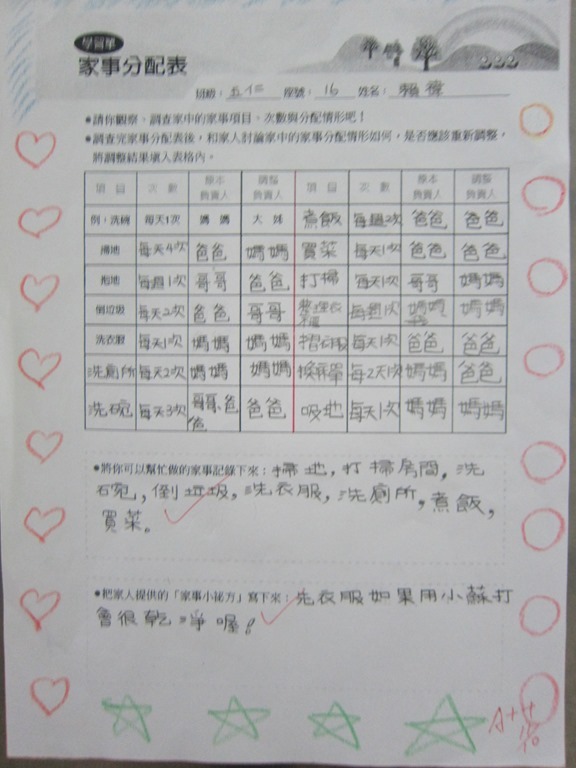 學習單
家事分配表
班級：五仁 座號：16 姓名：賴
●請你觀察、調查家中的家事項目、次數與分配情形吧！
●調查完家事分配表後，和家人討論家中的家事分配情形如何，是否應該重新調整，
將調整結果填入表格內。
項目 次數 原本負責人 調整負責人 項目 次數 原本負責人 調整負責人
例：洗碗 每天1次 媽媽 大姊 煮飯 每週2次 爸爸 爸爸
掃地 每天4次 爸爸 媽媽 買菜 每天1次 爸爸 爸爸
拖地 每週1次 哥哥 爸爸 打掃 每天1次 哥哥 媽媽
倒垃圾 每天2次 爸爸 哥哥 整理衣櫃 每週1次 媽媽 媽媽
洗衣服 每天1次 媽媽 媽媽 摺衣服 每天1次 爸爸 爸爸
洗廁所 每天2次 媽媽 媽媽 換床單 每2天1次 媽媽 爸爸
洗碗 每天3次 哥哥、爸爸 爸爸 吸地 每天1次 媽媽 媽媽
●將你可以幫忙做的家事記錄下來：掃地，打掃房間，洗
碗，倒垃圾，洗衣服，洗廁所，煮飯，
買菜。
●把家人提供的「家事小祕方」寫下來：洗衣服如果用小蘇打
會很乾淨喔！
A++